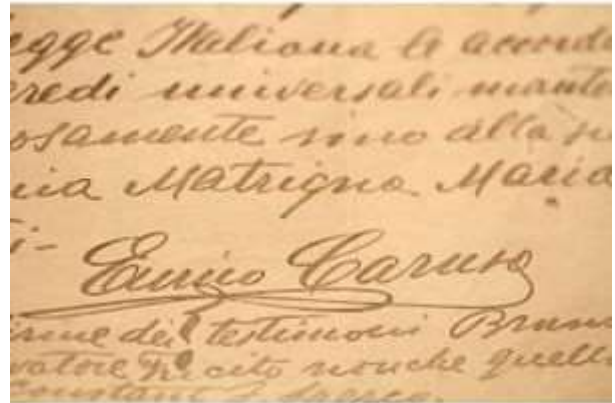 egge Italiana le accord
redi universali mante
osamente sino alla
mia Matrigna Maria
ti-
Enrico Caruso
firme dei testimoni Brun
vatore nonche quell
Constant